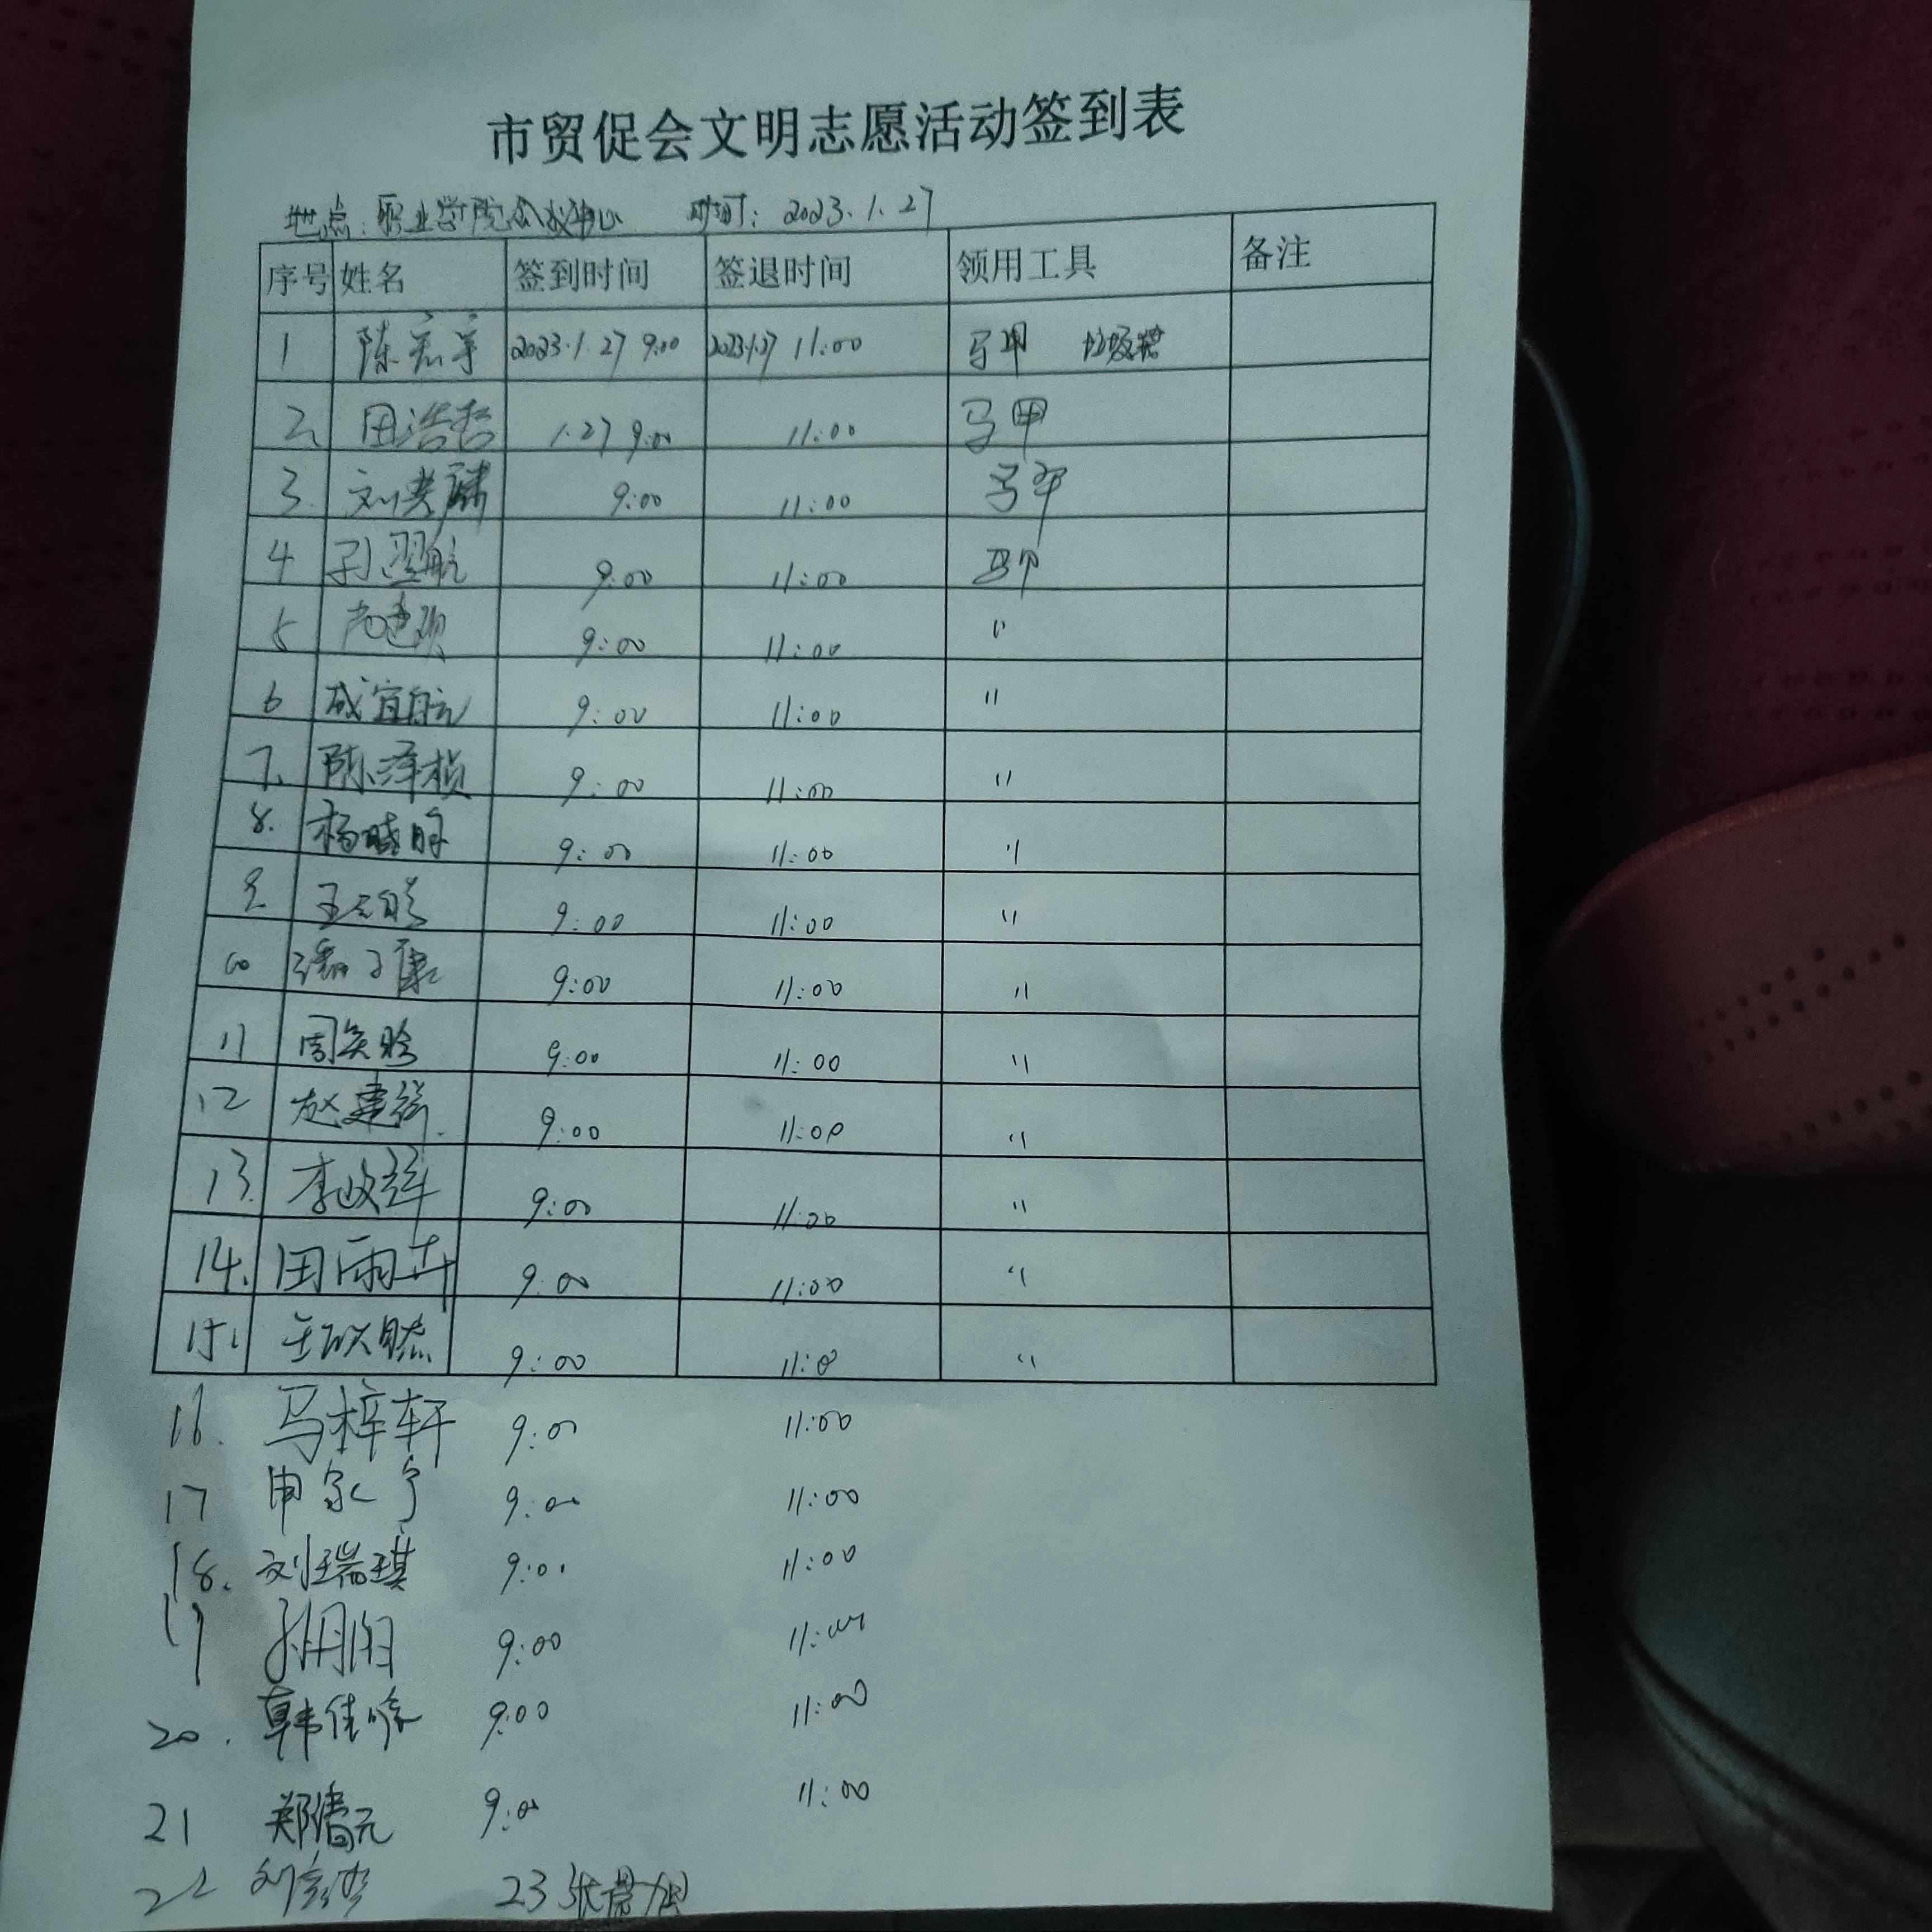 市贸促会文明志愿活动签到表
地点:职业学院 时间:2023.1.27
序号 姓名 签到时间 签退时间 领用工具 备注
1 陈宏宇 2023.1.27 9:00 2023.1.27 11:00 马甲 垃圾袋
2. 田浩哲 1.27 9:00 11:00 马甲
3. 刘 9:00 11:00 马甲
4 孙翌航 9:00 11:00 马甲
5 9:00 11:00 "
6 成宜航 9:00 11:00 "
7. 陈泽桢 9:00 11:00 "
8. 杨晓 9:00 11:00 "
9. 王 9:00 11:00 "
10 潘子康 9:00 11:00 "
11 周 9:00 11:00 "
12 赵建 9:00 11:00 "
13. 李 9:00 11:00 "
14. 田雨卉 9:00 11:00 "
15. 王 9:00 11:0 "
16. 马梓轩 9:00 11:00
17 申家宁 9:00 11:00
18. 刘瑞琪 9:00 11:00
19 孙 9:00 11:00
20. 韩佳 9:00 11:00
21 郑 元 9:00 11:00
22 刘 23 张